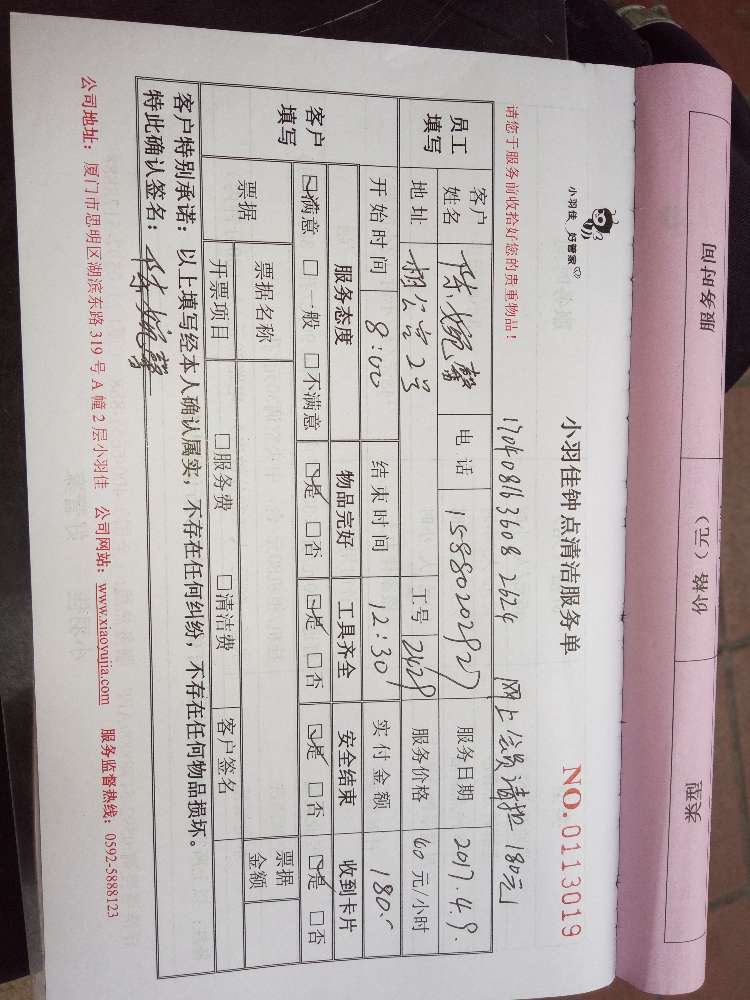 服务时间 价格（元） 类型
小羽佳 好管家
小羽佳钟点清洁服务单
NO.0113019
请您于服务前收拾好您的贵重物品！
1704081636082624 网上会员请扣180元
员工填写
客户姓名 陈婉馨 电话 15880202927 服务日期 2017.4.9.
地址 相公宫2号 工号 2429 服务价格 60 元/小时
开始时间 8:00 结束时间 12:30 实付金额 180.0
客户填写
服务态度 物品完好 工具齐全 安全结束 收到卡片
☑满意 □一般 □不满意 ☑是 □否 ☑是 □否 ☑是 □否 ☑是 □否
票据 票据名称 票据金额
开票项目 □服务费 □清洁费 客户签名
客户特别承诺：以上填写经本人确认属实，不存在任何纠纷，不存在任何物品损坏。
特此确认签名：陈婉馨
公司地址：厦门市思明区湖滨东路319号A幢2层小羽佳 公司网站：www.xiaoyujia.com 服务监督热线：0592-5888123